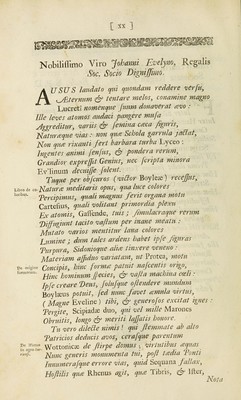 [ xx ]
Nobilissimo Viro Johanni Evelyno, Regalis
Soc. Socio Dignissimo.
AUSUS laudato qui quondam reddere versu,
Æternum & tentare melos, conamine magno
Lucreti nomenque suum donaverat ævo:
Ille leves atomos audaci pangere musa
Aggreditur, variis & semina cæca figuris,
Naturæque vias: non quæ Schola garrula jactat,
Non quæ rixanti fert barbara turba Lyceo:
Ingentes animi sensus, & pondera rerum,
Grandior expressit Genius, nec scripta minora
Evelinum decuisse solent.
Tuque per obscuros (victor Boylæe) recessus,
Naturæ meditaris opus, qua luce colores
Percipimus, quali magnus ferit organa motu
Cartesius, quali volitant primordia plexu
Ex atomis, Gassende, tuis; simulacraque rerum
Diffugiunt tacito vastum per inane meatu:
Mutato varios mentitur lana colores
Lumine; dum tales ardens habet ipse figuras
Purpura, Sidonioque alius tinxere veneno:
Materiam assiduo variatam, ut Protea, motu
Concipis, hinc formæ patuit nascentis origo,
Hinc hominum species, & vasta machina cœli:
Ipse creare Deus, solusque ostendere mundum
Boylæus potuit, sed nunc favet æmula virtus,
(Magne Eveline) tibi, & generosos excitat ignes
Pergite, Scipiadæ duo, qui vel mille Maronес
Obruitis, longo & meriti lassatis honore.
Tu vero dilecte nimis! qui stemmata ab alto
Patricios deducis avos, cerasque parentum
Wottonicæ de stirpe domus; virtutibus æquas
Nunc generis monumenta tui, post tædia Ponti
Innumerasque errore vias, quid Sequana fallax,
Hostilis quid Rhenus agit, quid Tibris, & Ister,
Nota